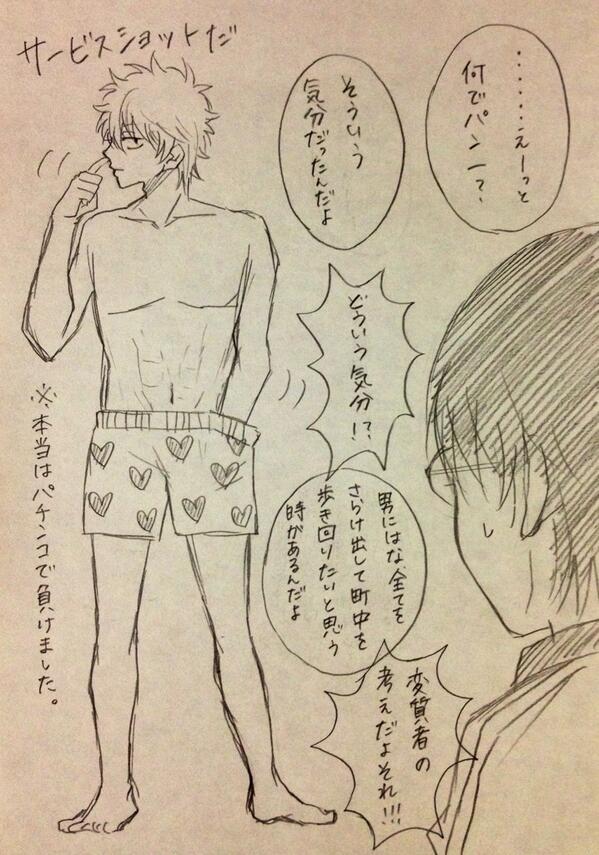 サービスショットだ
・・・・・・・えーっと
何でパンー?
そういう
気分だったんだよ
どういう気分!?
男にはな全てを
さらけ出して町中を
歩き回りたいと思う
時があるんだよ
変質者の
考えだよそれ!!!
※本当はパチンコで負けました。